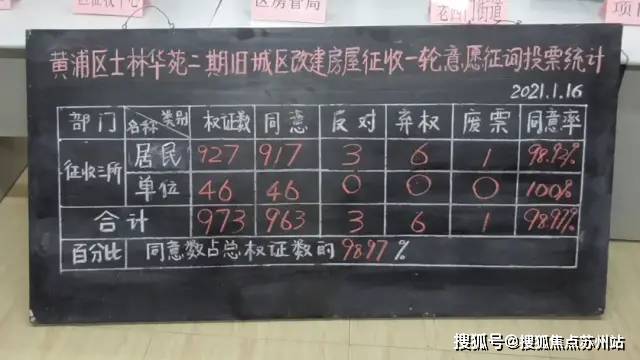 区房管局 老西门街道
黄浦区士林华苑二期旧城区改建房屋征收一轮意愿征询投票统计
2021.1.16
部门 名称 类别 权证数 同意 反对 弃权 废票 同意率
征收三所 居民 927 917 3 6 1 98.92%
单位 46 46 0 0 0 100%
合计 973 963 3 6 1 98.97%
百分比 同意数占总权证数的98.97%
搜狐号@搜狐焦点苏州站